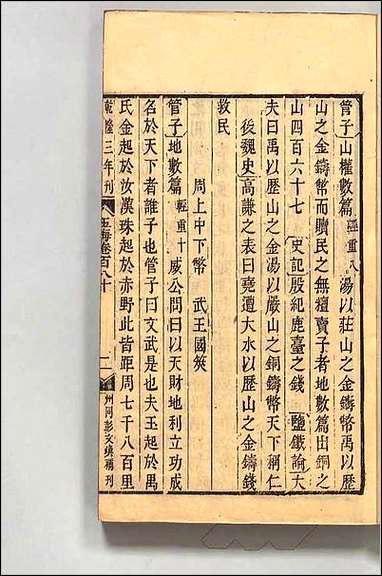 管子山權數篇輕重八湯以莊山之金鑄幣禹以歷
山之金鑄幣而贖民之無䊤賣子者地數篇出銅之
山四百六十七　史記殷紀鹿臺之錢　鹽鐵論大
夫曰禹以歷山之金湯以嚴山之銅鑄幣天下稱仁
後魏史高謙之表曰堯遭大水以歷山之金鑄錢
救民
周上中下幣　武王國筴
管子地數篇輕重十威公問曰以天財地利立功成
名於天下者誰子也管子曰文武是也夫玉起於禺
氏金起於汝漢珠起於赤野此皆距周七千八百里
乾隆三年刊
玉海卷百八十
二
州同彭文煒補刊